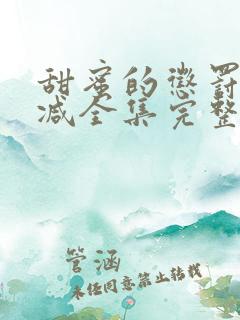 甜蜜的惩罚
减全集完整
管涵
未经同意禁止转载